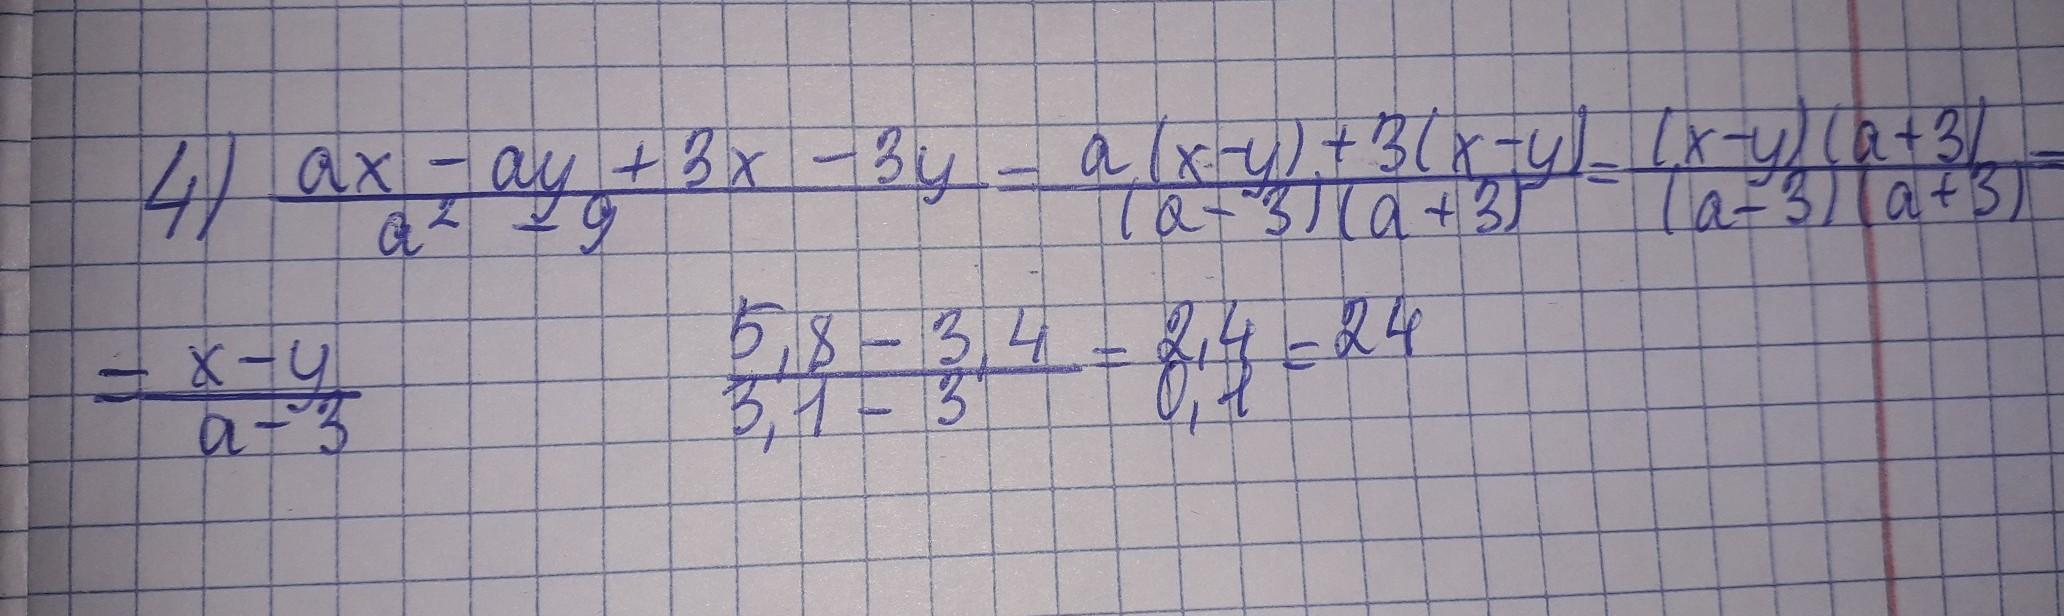 4) \frac{ax - ay + 3x - 3y}{a² - 9} = \frac{a(x-y) + 3(x-y)}{(a-3)(a+3)} = \frac{(x-y)(a+3)}{(a-3)(a+3)} =
= \frac{x-y}{a-3} \frac{5,8 - 3,4}{3,1 - 3} = \frac{2,4}{0,1} = 24